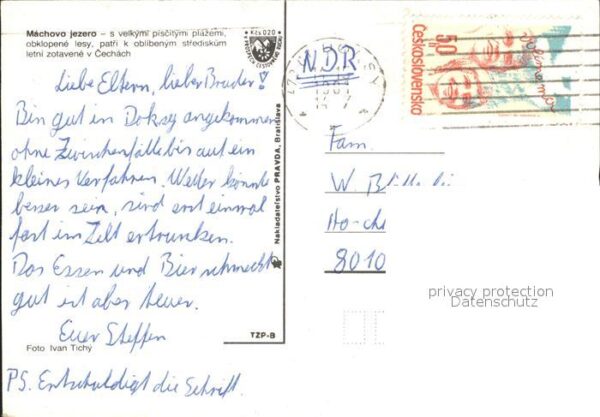 Máchovo jezero – s velkými písčitými plážemi,
obklopené lesy, patří k oblíbeným střediskům
letní zotavené v Čechách
Kčs 0,20
Liebe Eltern, lieber Bruder!
Bin gut in Doksy angekommen
ohne Zwischenfälle bis auf ein
kleines Verfahren. Wetter könnte
besser sein, sind erst einmal
fast im Zelt ertrunken.
Das Essen und Bier schmeckt
gut ist aber teuer.
Euer Steffen
Foto Ivan Tichý
PS. Entschuldigt die Schrift.
Nakladateľstvo PRAVDA, Bratislava
TZP-B
NDR
50
Československo
Fam.
W
8010
privacy protection
Datenschutz